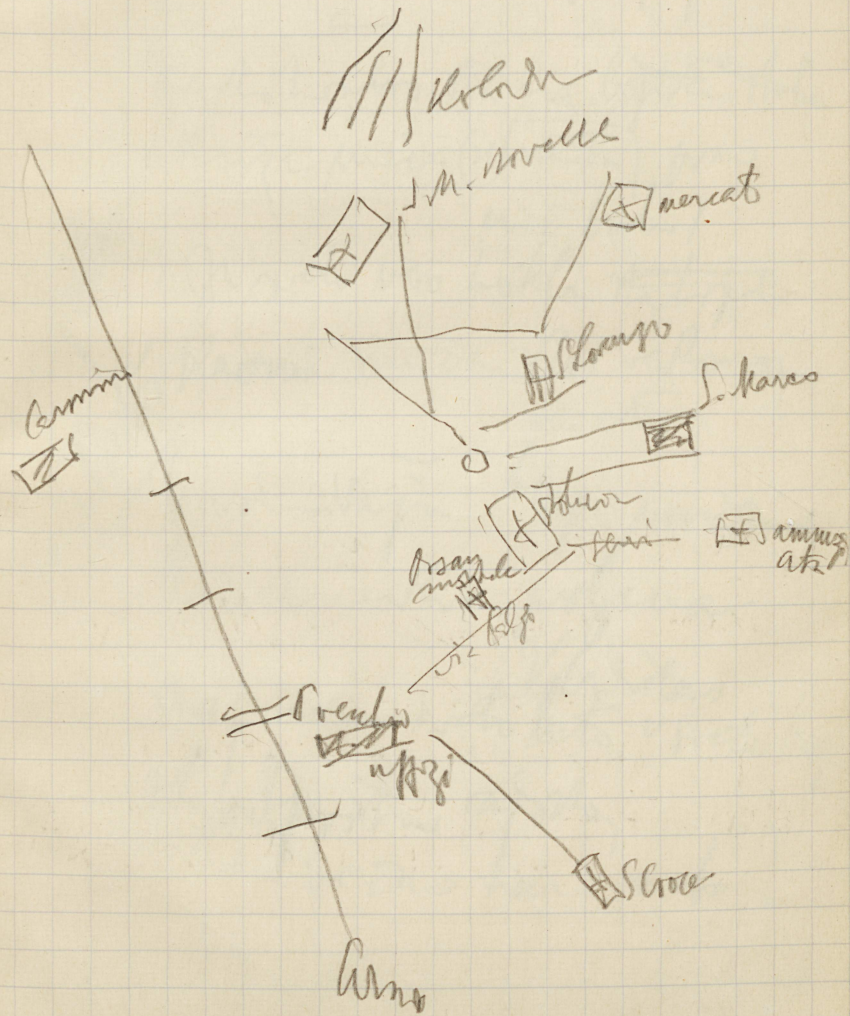 S. M. Novelle
mercato
S Lorenzo
S. Marco
Carmine
servi
annunz
ata
via
P vecchio
uffizi
S Croce
Arno